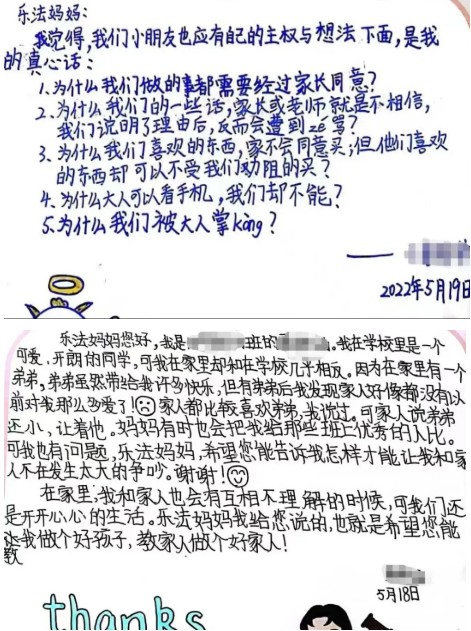 乐法妈妈:
我觉得,我们小朋友也应有自己的主权与想法下面,是我
的真心话:
1.为什么我们做的事都需要经过家长同意?
2.为什么我们的一些话,家长或老师就是不相信,
我们说明了理由后,反而会遭到zé骂?
3.为什么我们喜欢的东西,家不会同意买;但他们喜欢
的东西却可以不受我们劝阻的买?
4.为什么大人可以看手机,我们却不能?
5.为什么我们被大人掌kòng?
——
2022年5月19日
乐法妈妈您好,我是班的。我在学校里是一个
可爱、开朗的同学,可我在家里却和在学校几乎相反。因为在家里有一个
弟弟,弟弟虽然带给我许多快乐,但有弟弟后我发现家人好像都没有以
前对我那么多爱了!家人都比较喜欢弟弟,我说过。可家人说弟弟
还小,让着他。妈妈有时也会把我给那些班上优秀的人比。
可我也有问题,乐法妈妈,希望您能告诉我怎样才能让我和家
人不在发生太大的争吵。谢谢!
在家里,我和家人也会有互相不理解的时候,可我们还
是开开心心的生活。乐法妈妈我给您说的,也就是希望您能
让我做个好孩子,教家人做个好家人!
教
5月18日
thanks